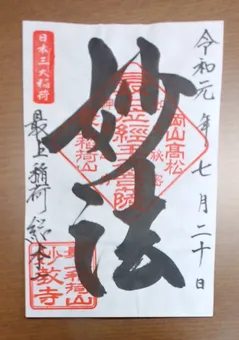 令和元年七月二十日
岡山高松
妙法
日本三大稲荷
最上稲荷総本山
最上稲荷山
妙教寺